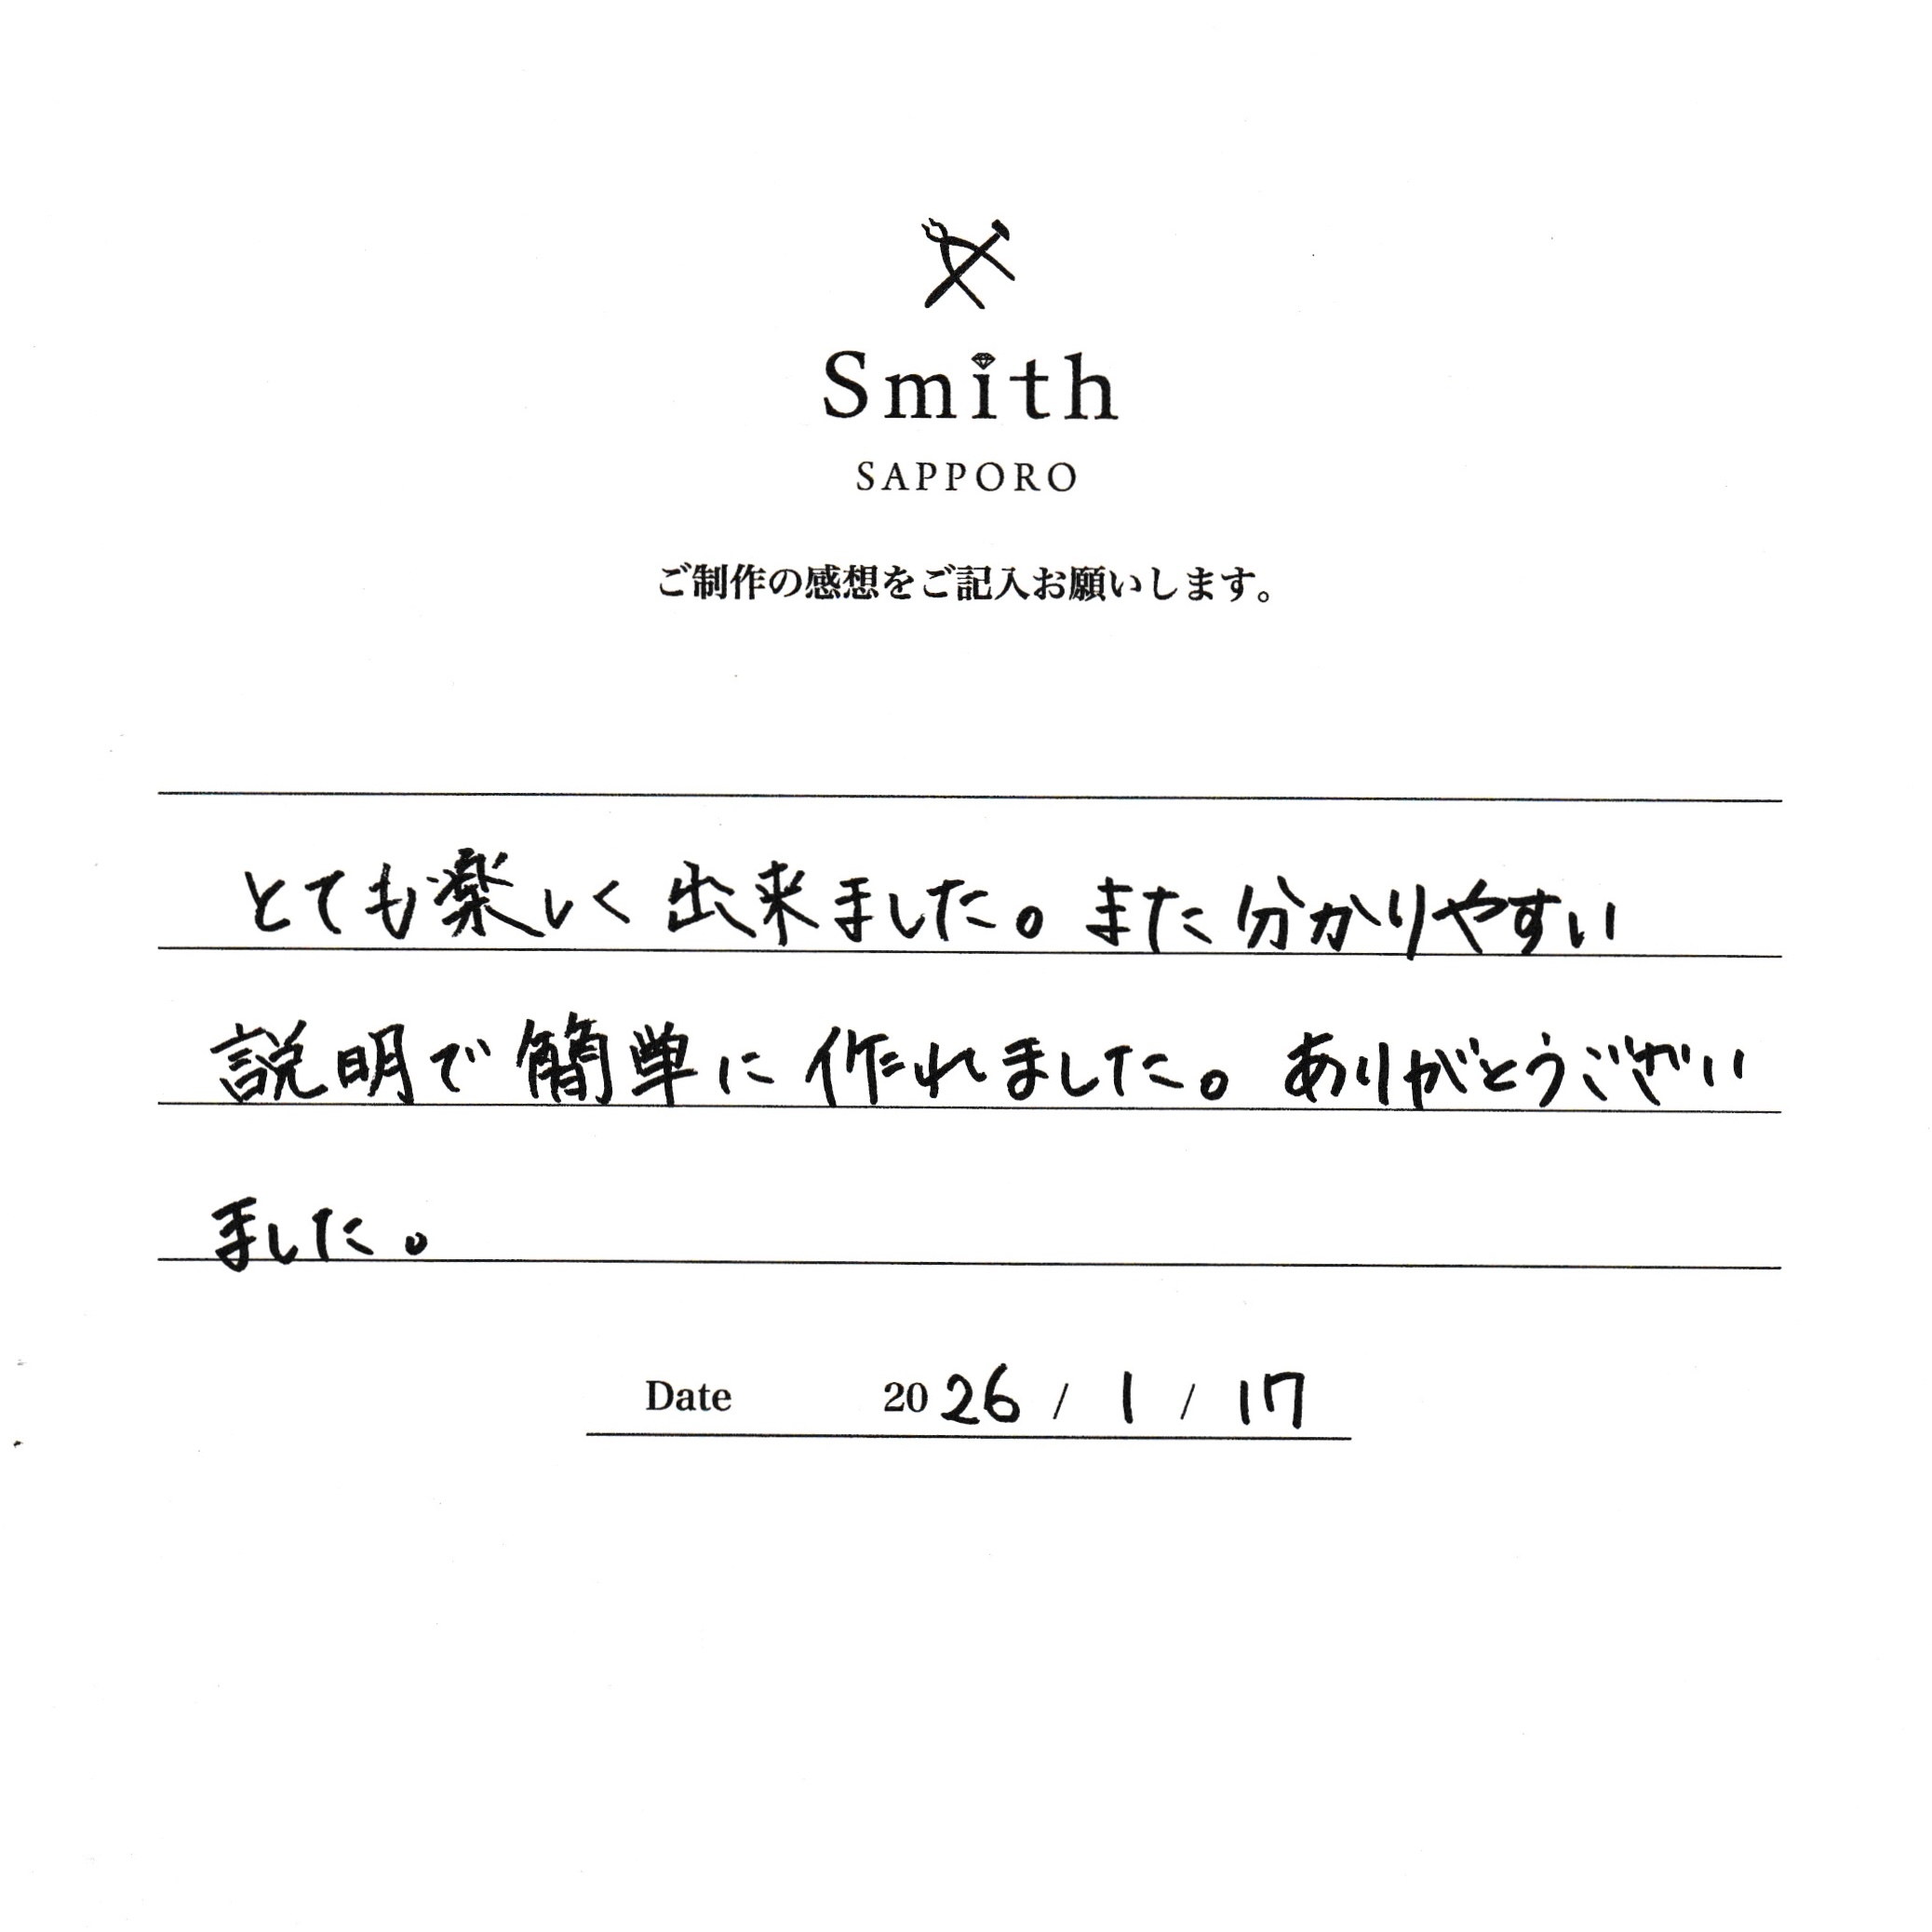 Smith
SAPPORO
ご制作の感想をご記入お願いします。
とても楽しく出来ました。また分かりやすい
説明で簡単に作れました。ありがとうござい
ました。
Date 2026 / 1 / 17